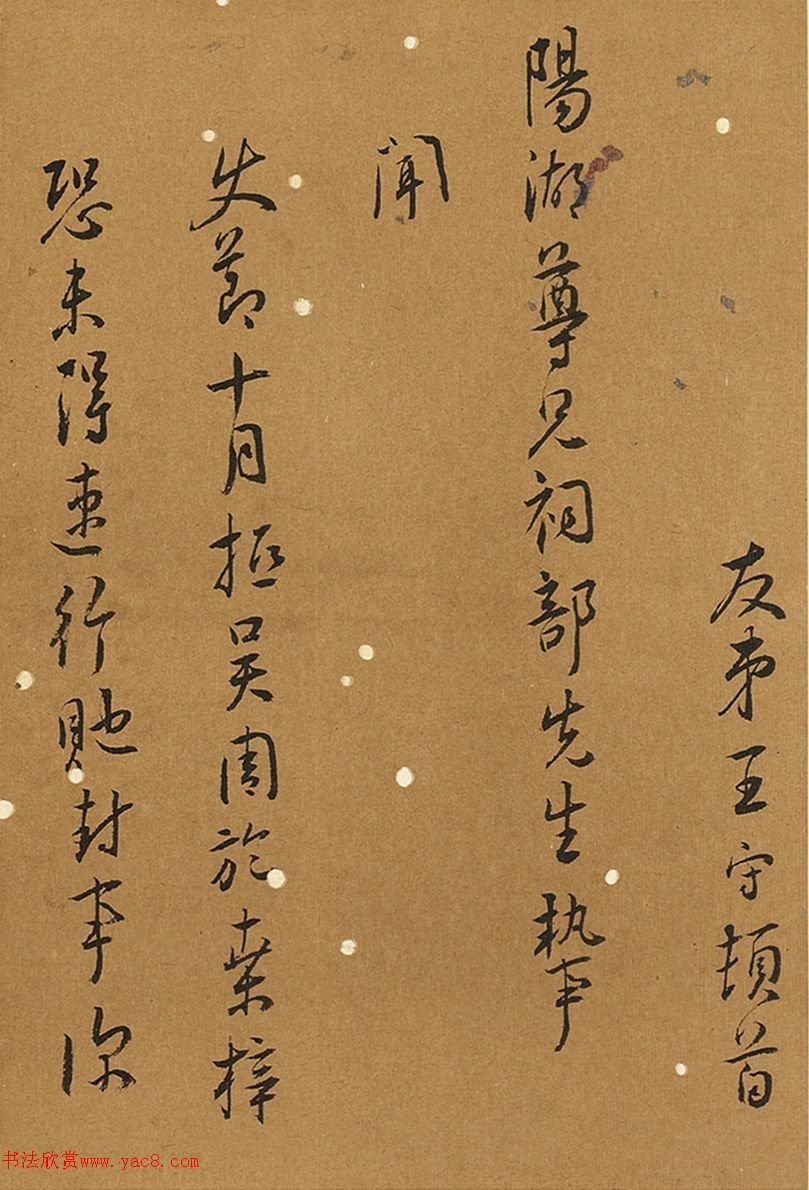 友弟王守頓首
陽湖尊兄祠部先生執事
聞
節十月抵吳於桑梓
恐未得速行貤封事深
书法欣赏www.yac8.com